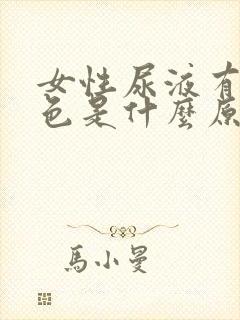 女性尿液有
色是什麼原
馬小曼